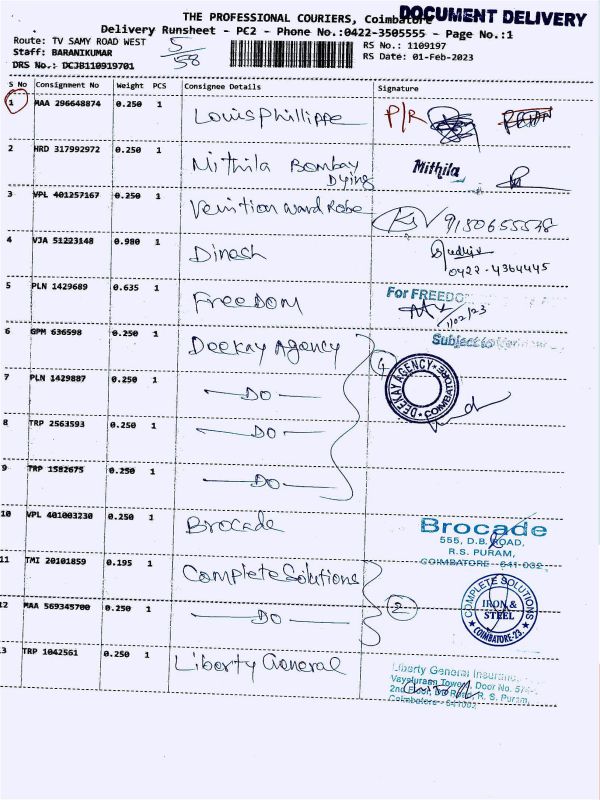 THE PROFESSIONAL COURIERS, Coimbatore
DOCUMENT DELIVERY
Delivery Runsheet - PC2 - Phone No.:0422-3505555 - Page No.:1
Route: TV SAMY ROAD WEST 5/58 RS No.: 1109197
Staff: BARANIKUMAR RS Date: 01-Feb-2023
DRS No.: DCJB110919701
S No Consignment No Weight PCS Consignee Details Signature
1 MAA 296648874 0.250 1 Louis Phillippe P/R
2 HRD 317992972 0.250 1 Mithila Bombay Dying Mithila
3 VPL 401257167 0.250 1 Venition ward Robe 9150655538
4 VJA 51223148 0.980 1 Dinesh
0422-4364445
5 PLN 1429689 0.635 1 Freedom For FREEDO
1/02/23
Subject to
6 GPM 636598 0.250 1 Deekay Agency 4
DEEKAY AGENCY COIMBATORE
7 PLN 1429887 0.250 1 — DO —
8 TRP 2563593 0.250 1 — DO —
9 TRP 1582675 0.250 1 — DO —
10 VPL 401003230 0.250 1 Brocade Brocade
555, D.B. ROAD,
R.S. PURAM,
COIMBATORE - 641 002.
11 TMI 20101859 0.195 1 Complete Solutions
COMPLETE SOLUTIONS
IRON &
STEEL
COIMBATORE-23.
12 MAA 569345700 0.250 1 — DO — 2
3 TRP 1042561 0.250 1 Liberty General
Liberty General Insurance
Towers, Door No.
2nd Floor, DB Road, R. S. Puram,
Coimbatore - 641002